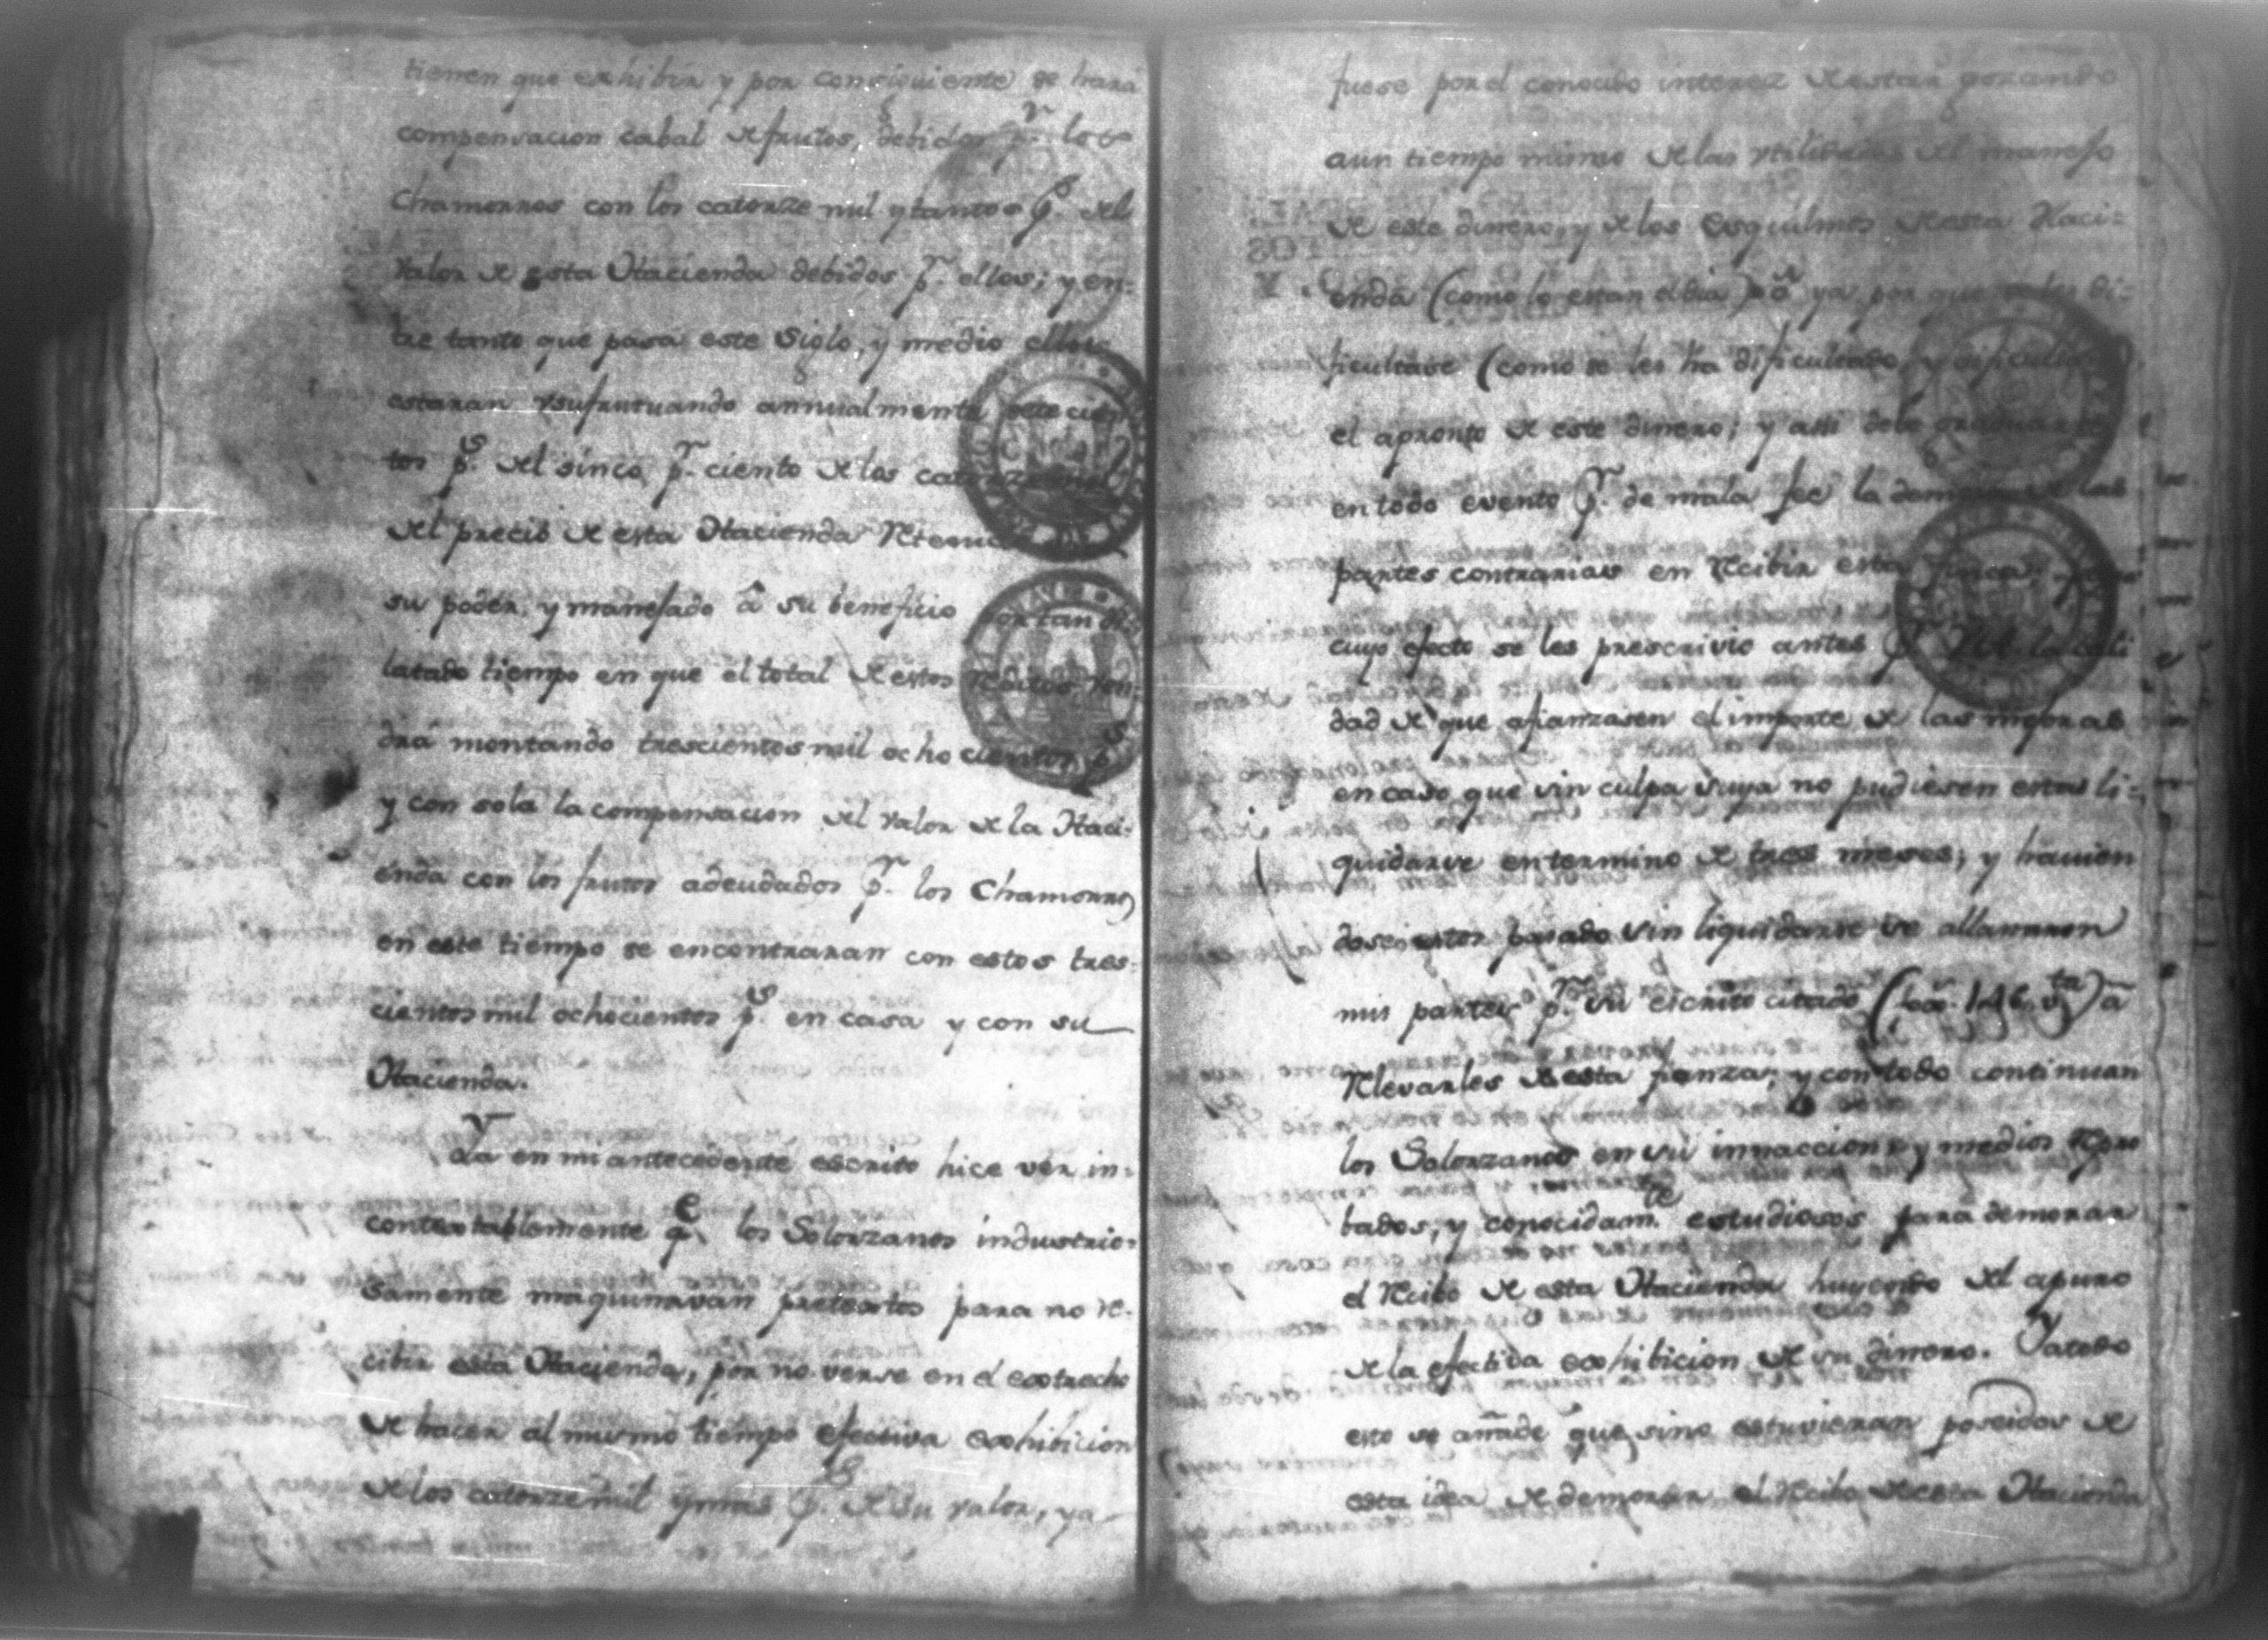 tienen que exhibir y por consiguiente se hará
compensacion cabal de frutos, debidos pr. los
Chamorros con los catorze mil y tantos ps. del
valor de esta Hacienda debidos pr. ellos; y en-
tre tanto que pasa este siglo, y medio ellos
estaran vsufrutuando annualmente setecien
tos ps. del sinco pr. ciento de los catorze mil
del precio de esta Hacienda
su poder, y manejado â su beneficio por tan di-
latado tiempo en que el total de estos reditos ven-
drá montando trescientos mil ochocientos ps.
y con sola la compensacion del valor de la Haci-
enda con los frutos adeudados pr. los Chamorros
en este tiempo se encontraran con estos tres-
cientos mil ochocientos ps. en casa y con su
Hacienda.
Ya en mi antecedente escrito hice vér in-
contextablemente qe. los Solorzanos industrio-
samente maquinavan pretextos para no re-
cibir esta Hacienda, por no verse en el extrecho
de hacer al mismo tiempo efectiva exhibicion
de los catorze mil y mas ps. de su valor, ya
fuese por el conocido interez de estar gozando
aun tiempo mismo de las vtilidades del manejo
de este dinero, y de los esquilmos de esta Haci-
enda (como lo estan el dia) ya por que se les di-
ficultase (como se les ha dificultado, y dificulta)
el apronto de este dinero; y assi debe graduarse
en todo evento pr. de mala fee la demora de las
partes contrarias en recibir esta finca, para
cuyo efecto se les prescrivio antes pr. la cali
dad de que afianzasen el importe de las mejoras
en caso que sin culpa suya no pudiesen estas li-
quidarse en termino de tres meses; y havien
dose estos pasado sin liquidarse se allanaron
mis partes pr. su escrito citado â
relevarles de esta fianza; y con todo continuan
los Solorzanos en su innaccion, y medios repro
bados, y conocidamte. estudiosos para demorar
el recibo de esta Hacienda huyendo del apuro
de la efectiva exhibicion de su dinero. Y a todo
esto se añade que sino estuvieran poseidos de
esta idea de demorar el recibo de esta Hacienda